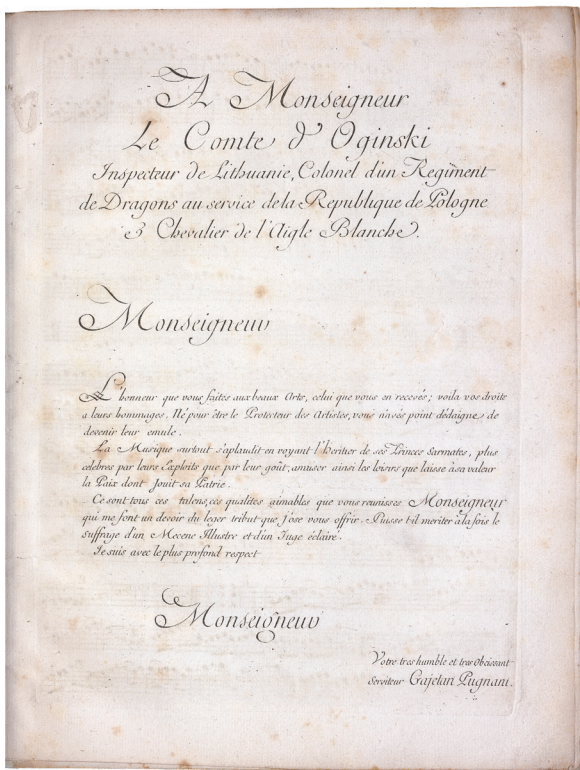 A Monseigneur
Le Comte d'Oginski
Inspecteur de Lithuanie, Colonel d'un Regiment
de Dragons au service de la Republique de Pologne
& Chevalier de l'Aigle Blanche.
Monseigneur
L'honneur que vous faites aux beaux Arts, celui que vous en recevés; voila vos droits
a leurs hommages. Né pour être le Protecteur des Artistes, vous n'avés point dédaigné de
devenir leur emule.
La Musique surtout s'aplaudit en voyant l'heritier de ses Princes Sarmates, plus
célebres par leurs Exploits que par leur goût, amuser ainsi les loisirs que laisse à sa valeur
la Paix dont Jouit sa Patrie.
Ce sont tous ces talens, ces qualites aimables que vous reunisses Monseigneur
qui me font un devoir du leger tribut que J'ose vous offrir. Puisse t-il meriter à la fois le
suffrage d'un Mecene Illustre et d'un Juge éclaire.
Je suis avec le plus profond respect
Monseigneur
Votre tres humble et tres Obeissant
Serviteur Gajetan Pugnani.